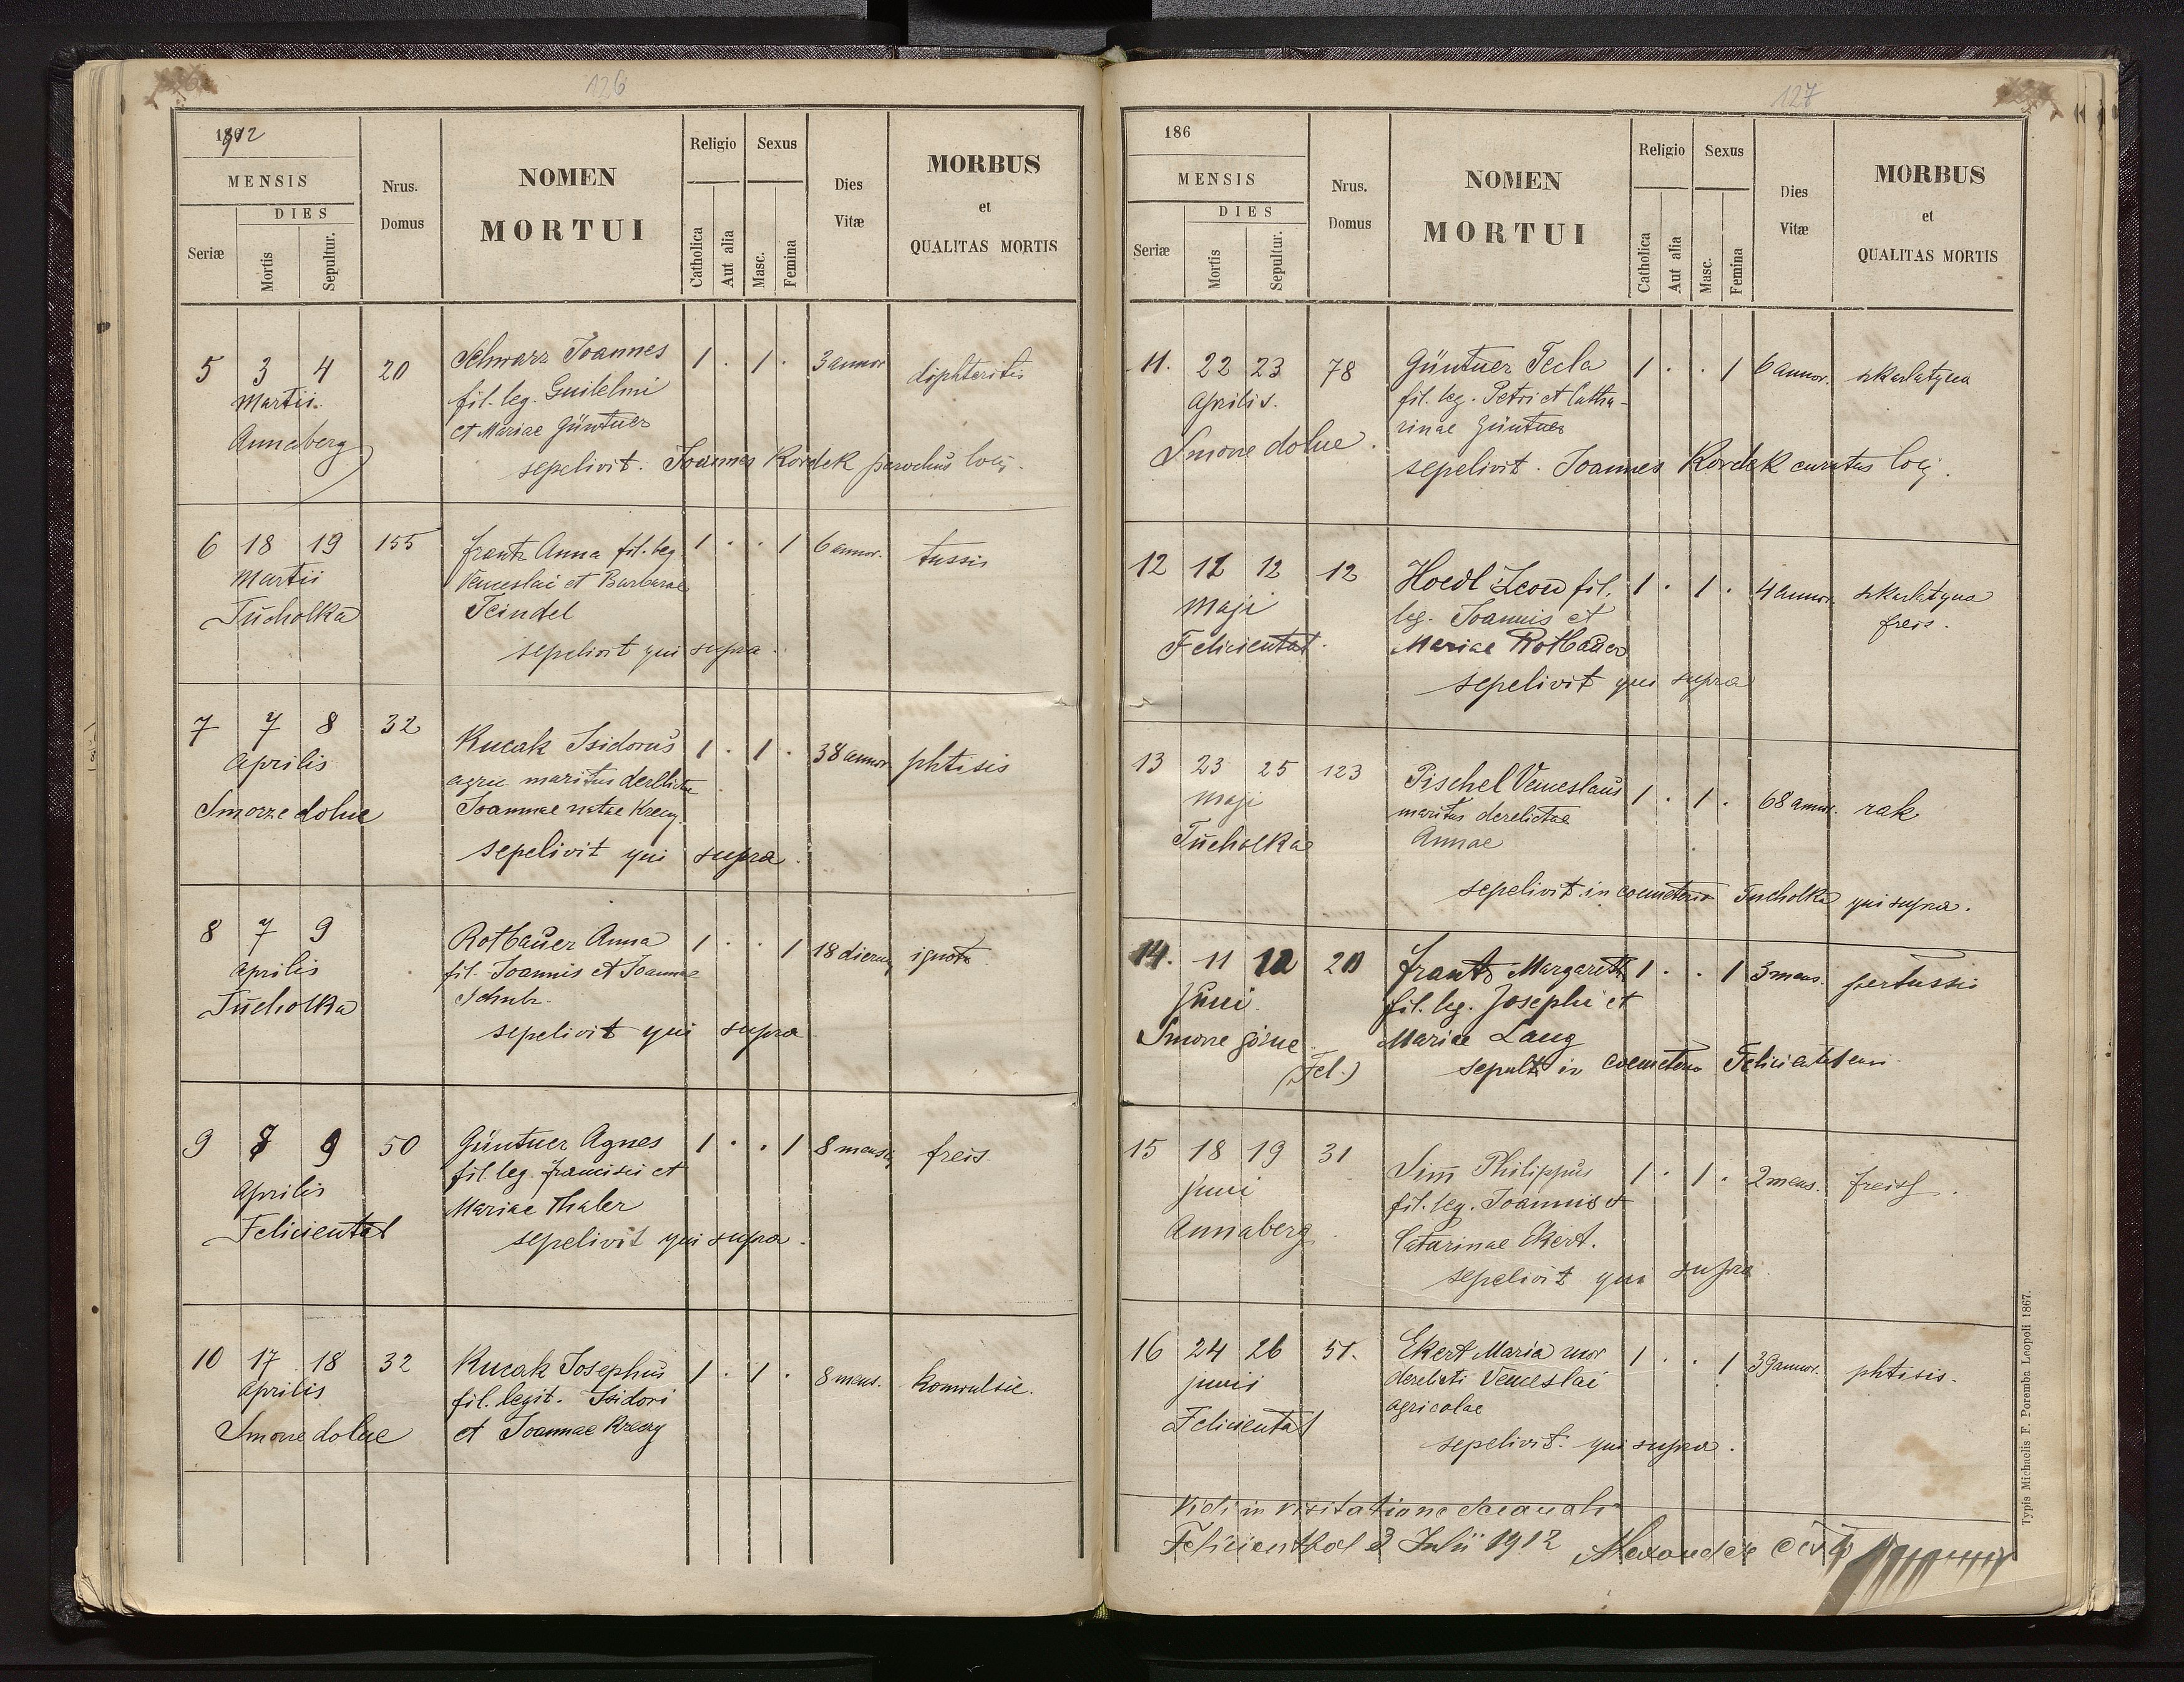 126
1912
MENSIS
DIES
Seriæ
Mortis
Sepultur.
Nrus.
Domus
NOMEN
MORTUI
Religio
Catholica
Aut alia
Sexus
Masc.
Femina
Dies
Vitæ
MORBUS
et
QUALITAS MORTIS
5 3 4 20 Schwarz Joannes 1 . 1 . 3 annor diphteritis
Martii fil. leg. Guilelmi
Annaberg et Mariae Güntner
sepelivit. Joannes Kordek parochus loci.
6 18 19 155 Frantz Anna fil. leg 1 . . 1 6 annor. tussis
Martii Venceslai et Barbarae
Tucholka Teindel
sepelivit qui supra.
7 7 8 32 Kucak Isidorus 1 . 1 . 38 annor phtisis
Aprilis agric maritus derelictae
Smorze dolne Joannae natae Krecey.
sepelivit qui supra.
8 7 9 Rotbauer Anna 1 . . 1 18 dierum ignota
Aprilis fil. Joannis et Joannae
Tucholka Schulz.
sepelivit qui supra
9 8 9 50 Güntner Agnes 1 . . 1 8 mensiu freis
Aprilis fil. leg. Francisci et
Felicientat Mariae Thaler
sepelivit qui supra.
10 17 18 32 Kucak Josephus 1 . 1 . 8 mens. konwulsie.
Aprilis fil. legit. Isidori
Smorze dolne et Joannae Krecey
127
186
MENSIS
DIES
Seriæ
Mortis
Sepultur.
Nrus.
Domus
NOMEN
MORTUI
Religio
Catholica
Aut alia
Sexus
Masc.
Femina
Dies
Vitæ
MORBUS
et
QUALITAS MORTIS
11. 22 23 78 Güntner Tecla 1 . . 1 6 annor. szkarlatyna
Aprilis. fil. leg. Petri et Catha-
Smorze dolne. rinae Güntner
sepelivit. Joannes Kordek curatus loci.
12 12 12 12 Hoedl Leon fil. 1 . 1 . 4 annor szkarlatyna
Maji leg. Joannis et freis.
Felicientat. Mariae Rotbauer
sepelivit qui supra
13 23 25 123 Pischel Venceslaus 1 . 1 . 68 annor. rak
Maji maritus derelictae
Tucholka Annae
sepelivit in coemeterio Tucholka qui supra.
14. 11 12 20 Frantz Margareth 1 . . 1 3 mens. pertussis
Juni fil. leg. Josephi et
Smorze górne Mariae Lang
(Fel.) sepulta in coemeterio Felicientatensi.
15 18 19 31 Simm Philippus 1 . 1 . 2 mens. freis.
Juni fil. leg. Joannis et
Annaberg. Catarinae Ekert.
sepelivit qui supra.
16 24 26 51. Ekert Maria uxor 1 . . 1 39 annor. phtisis.
Junii derelicti Venceslai
Felicientat agricolae
sepelivit qui supra.
Vidi in visitatione decanali
Felicienthal 3 Julii 1912 Alexander
Typis Michaelis F. Poremba Leopoli 1867.